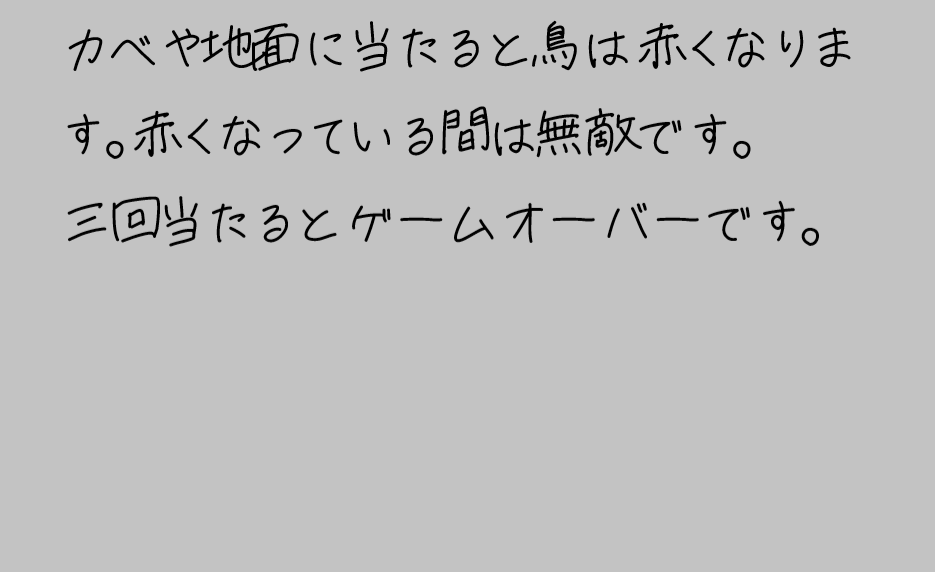 カベや地面に当たると鳥は赤くなりま
す。赤くなっている間は無敵です。
三回当たるとゲームオーバーです。